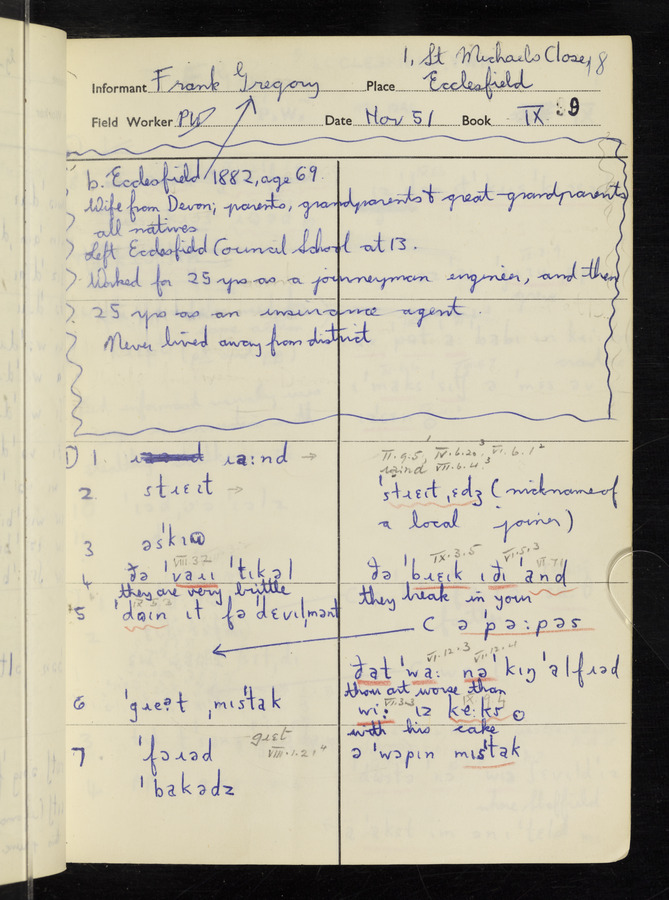 1, St Michaels Close, 8
Informant Frank Gregory Place Ecclesfield
Field Worker PW Date Nov 51 Book IX : 9
b. Ecclesfield 1882, age 69.
Wife from Devon; parents, grandparents & great-grandparents
all natives
Left Ecclesfield Council School at 13.
Worked for 25 yrs as a journeyman engineer, and then
25 yrs as an insurance agent.
Never lived away from district
1. ɹa:nd →
II.9.5, IV.6.20³, VI.6.1²
ɹaind VII.6.4³
2 stɹɛɪt →
'stɹɛɪtˌɛdʒ (nickname of
a local joiner)
3 ə'skɹ
VIII.3.2
4 ðə 'vaɹɪ 'tɪkəl
they are very brittle
IX.3.5 VI.5.3 VI.7.1
ðə 'bɹɛɪk ɪ ðɪ 'and
they break in your
5 'dɪɪn ɪt fə 'dɛvɪlmənt
C ə 'pə:pəs
VI.12.3 VI.12.4
ðat 'wa: nə 'kɪŋ 'alfɹəd
thou art worse than
6 'gɹɛat ˌmɪs'tak
wi: ɪz kɛ:ks
with his cake
7 'fəɹəd
gɹɛt
VIII.1.21⁴
ə 'wɔpɪn mɪs'tak
'bakədz